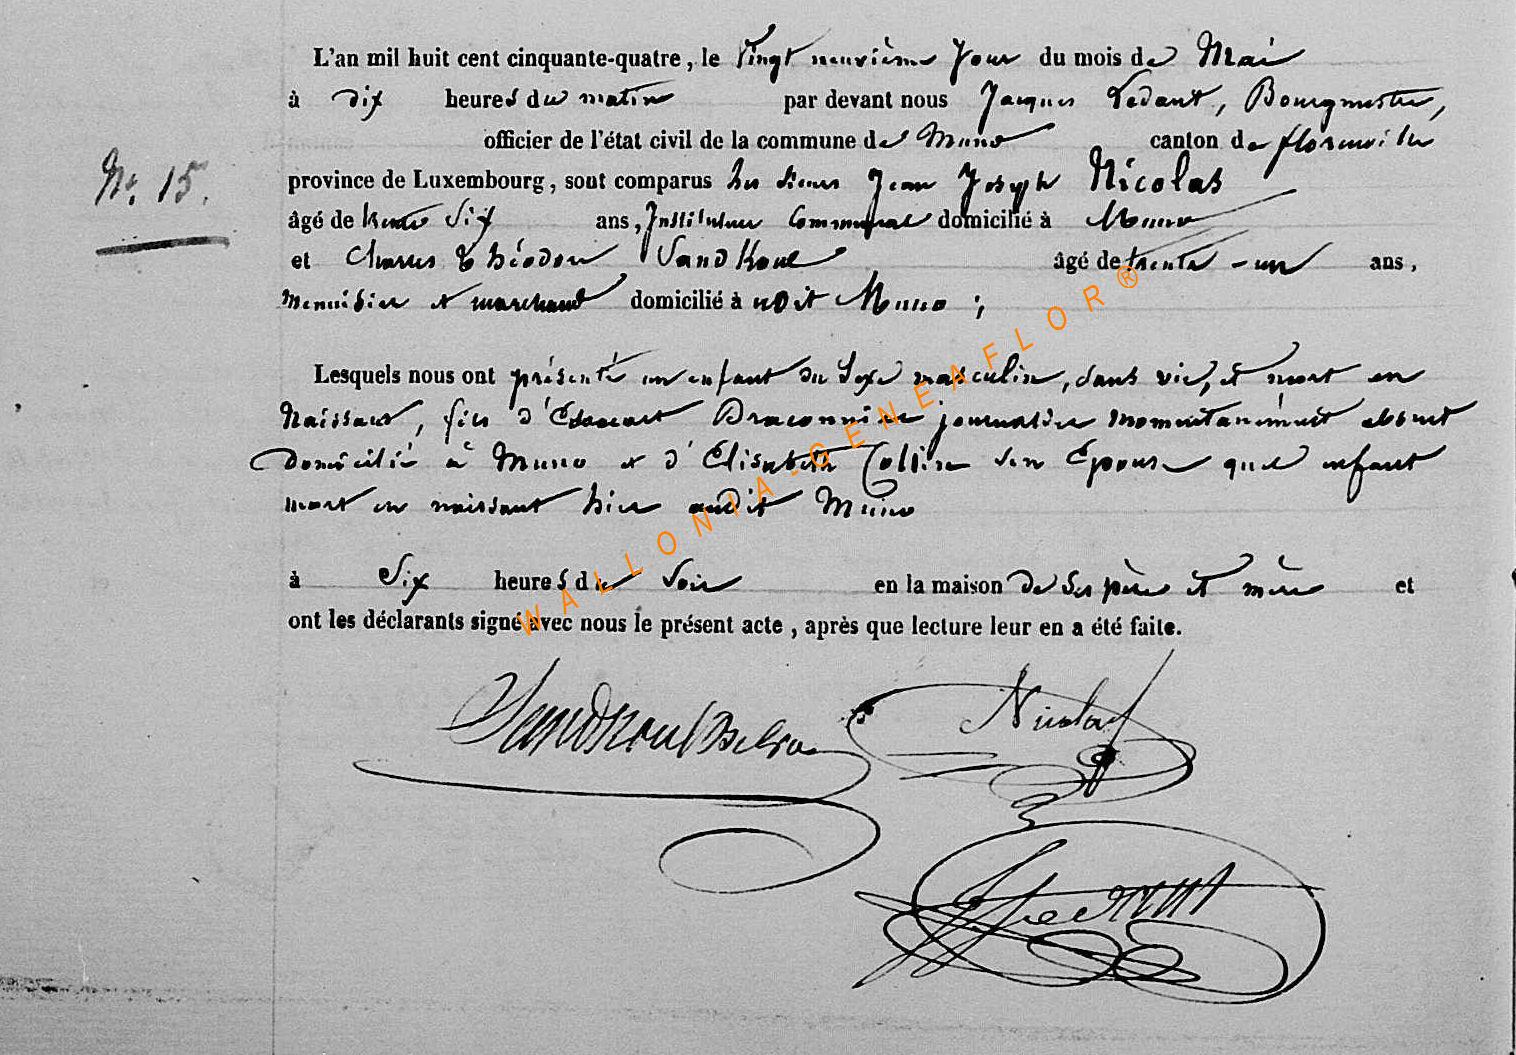 L'an mil huit cent cinquante-quatre, le Vingt neuvième Jour du mois de Mai
à dix heures du matin par devant nous Jacques Ledant, Bourgmestre,
officier de l'état civil de la commune de Muno canton de florenville
N.º 15.
province de Luxembourg, sont comparus Les sieurs Jean Joseph Nicolas
âgé de trente Six ans, Instituteur Communal domicilié à Muno
et Charles Théodore Vandkoul âgé de trente-un ans,
Menuisier et marchand domicilié à udit Muno ;
Lesquels nous ont présenté un enfant du Sexe masculin, sans vie, et mort en
Naissant, fils d' Braconnier journalier momentanément absent
Domicilié à Muno et d'Elisabeth Collin son Epouse quel enfant
mort en naissant hier audit Muno
à Six heures du Soir en la maison de Ses père et mère et
ont les déclarants signé avec nous le présent acte, après que lecture leur en a été faite.
Nicolas
Ledant
WALLONIA-GENEAFLOR®